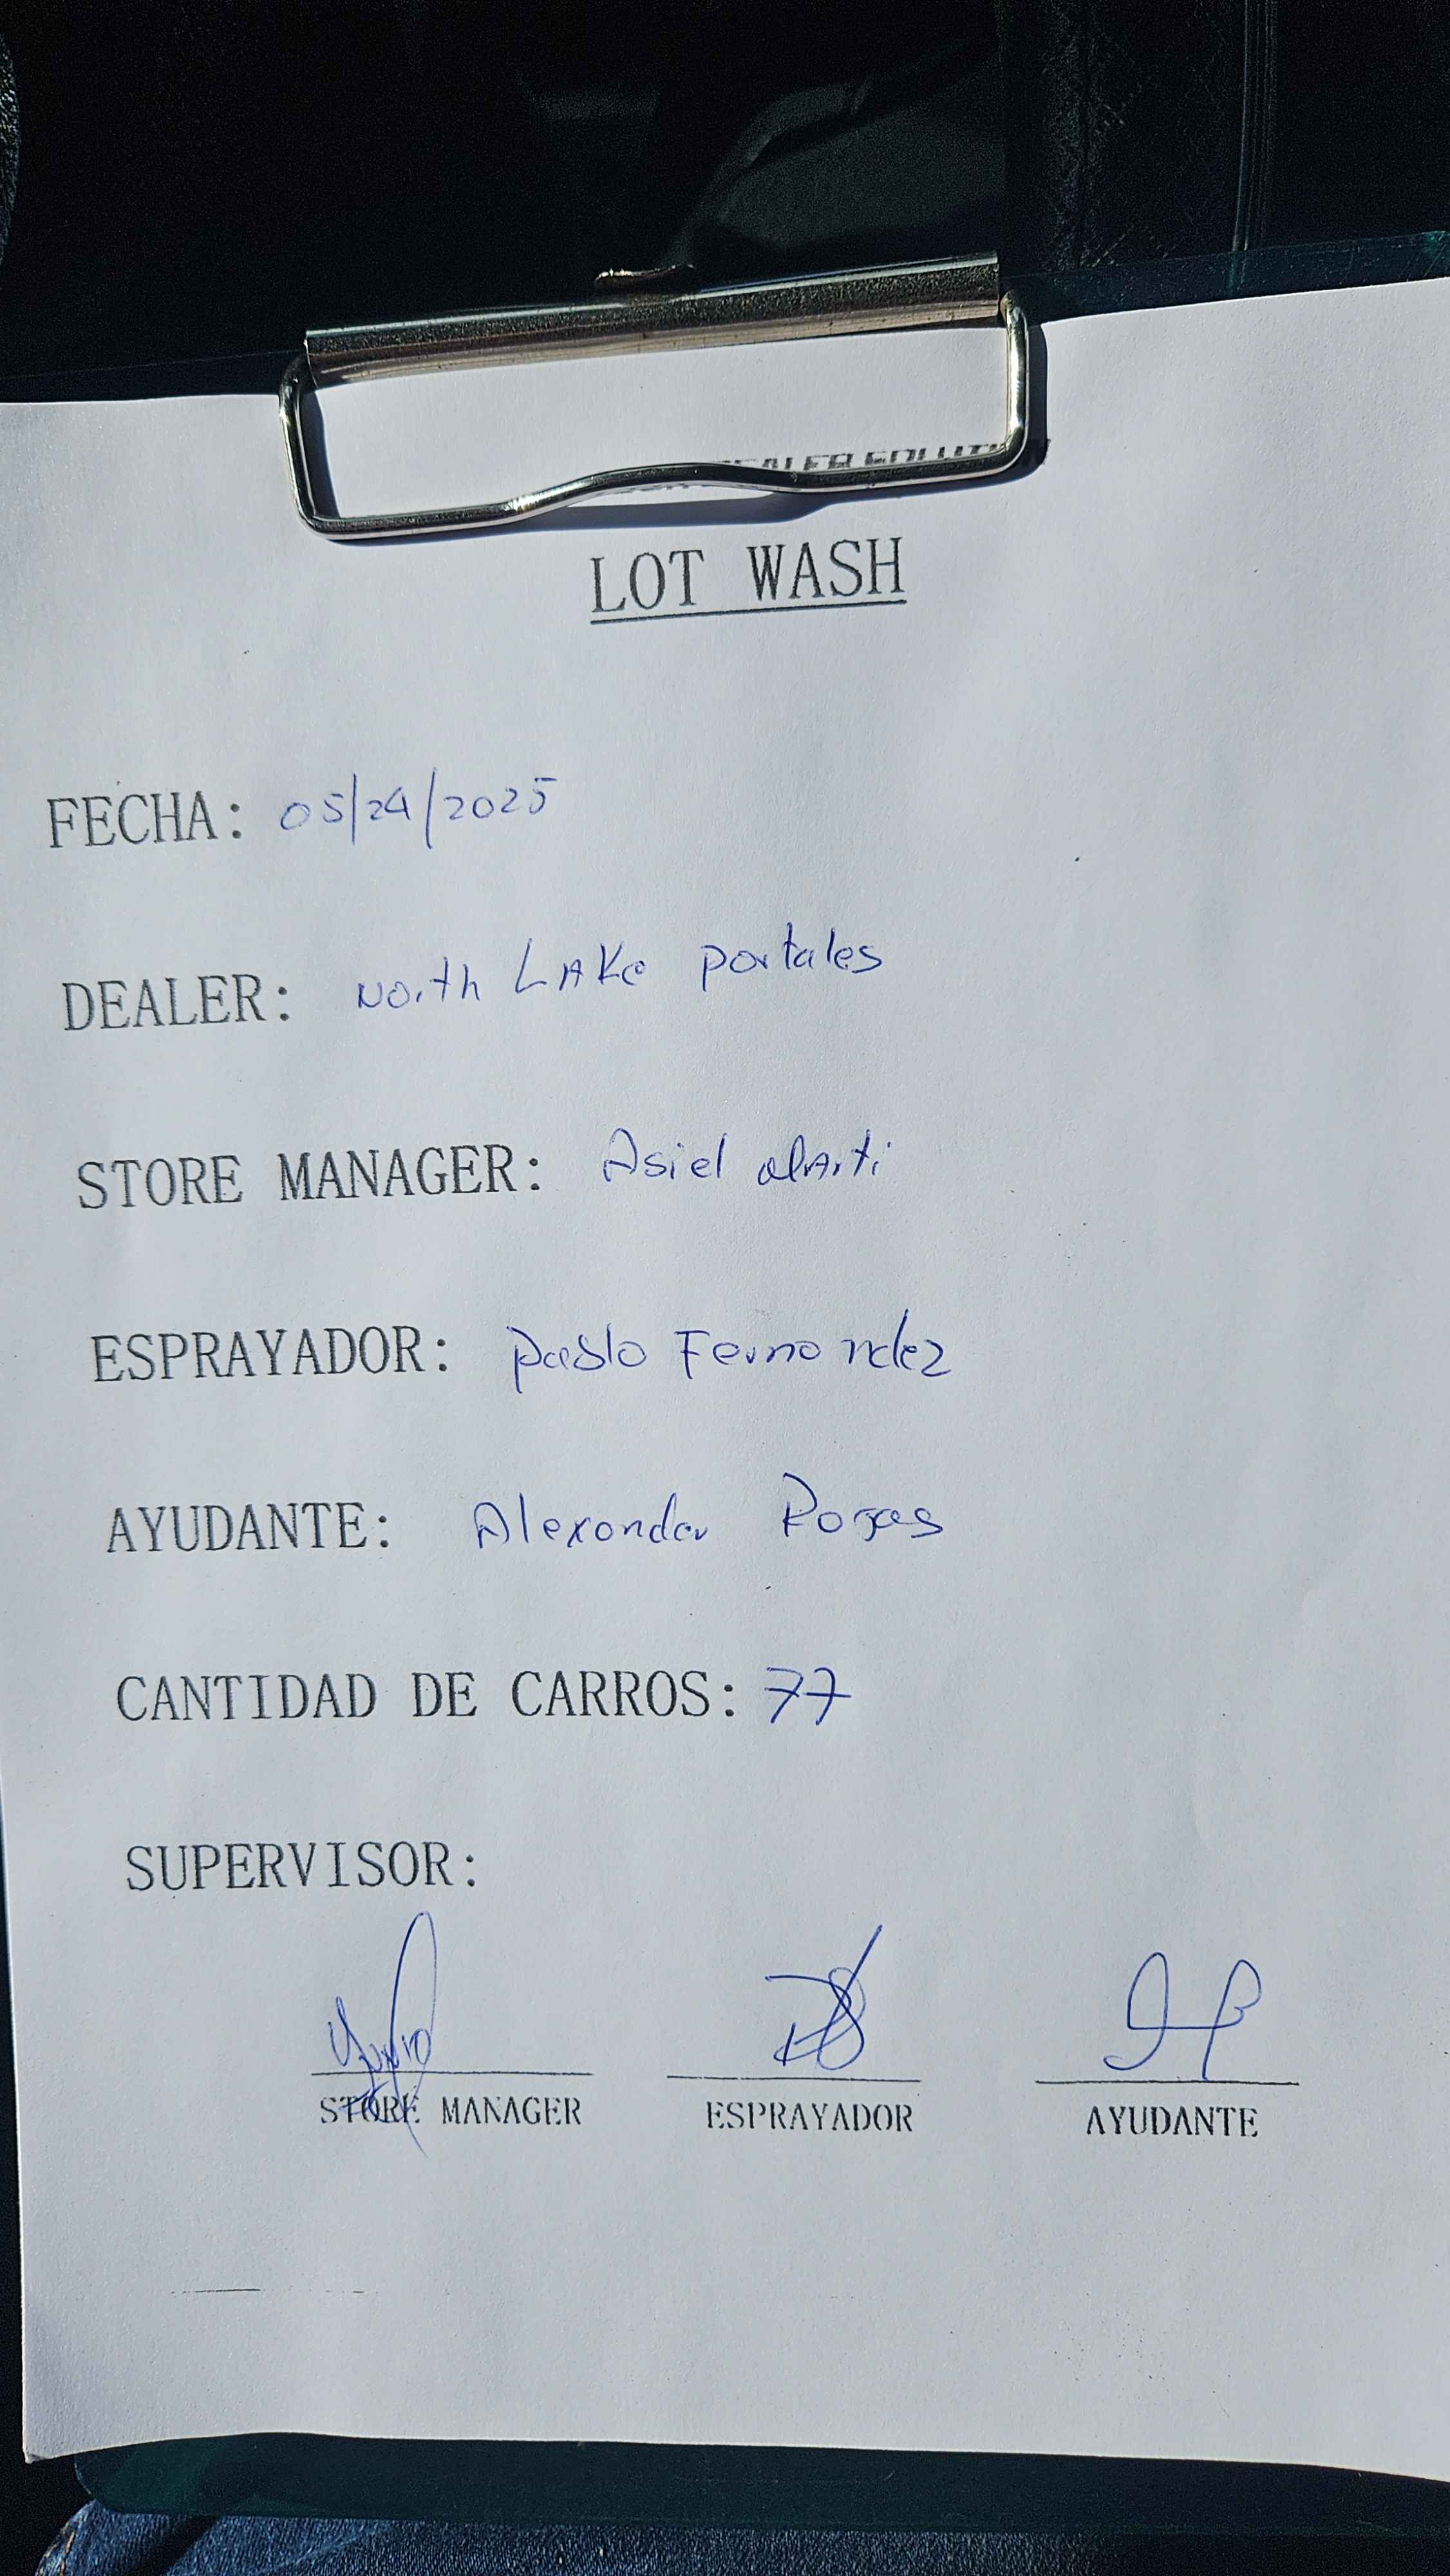 LOT WASH
FECHA: 05/24/2025
DEALER: North LAKe portales
STORE MANAGER: Asiel
ESPRAYADOR: pablo Fernandez
AYUDANTE: Alexander Rojas
CANTIDAD DE CARROS: 77
SUPERVISOR:
STORE MANAGER ESPRAYADOR AYUDANTE